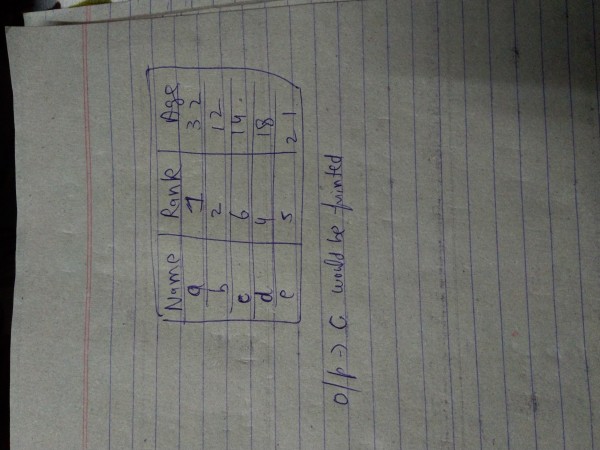 Name Rank Age
a 1 32
b 2 12
c 6 14
d 4 18
e 5 21
O/p -> C would be printed